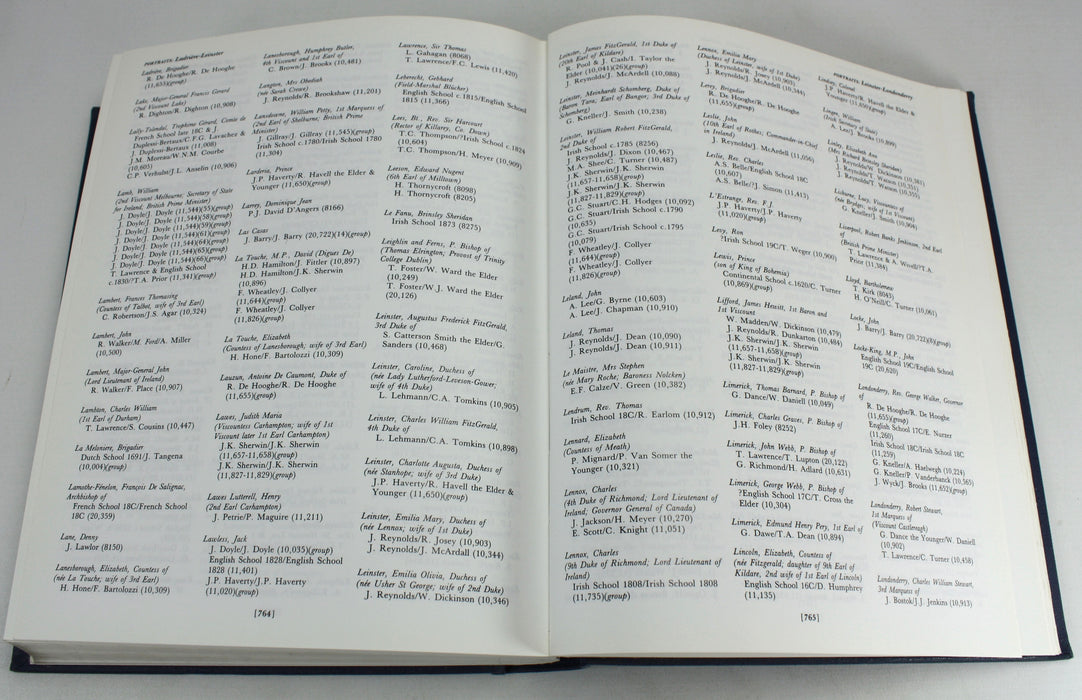 PORTRAITS: Ladvière-Leinster
Ladvière, Brigadier
R. De Hooghe/R. De Hooghe
(11,655)(group)
Lake, Major-General Francis Gerard
(2nd Viscount Lake)
R. Dighton/R. Dighton (10,908)
Lally-Tolendal, Trophime Gérard, Comte de
French School late 18C & J.
Duplessi-Bertaux/C.F.G. Lavachez &
J. Duplessi-Bertaux (11,008)
J.M. Moreau/W.N.M. Courbe
(10,605)
C.P. Verhulst/J.L. Anselin (10,906)
Lamb, William
(2nd Viscount Melbourne; Secretary of State
for Ireland, British Prime Minister)
J. Doyle/J. Doyle (11,544)(55)(group)
J. Doyle/J. Doyle (11,544)(58)(group)
J. Doyle/J. Doyle (11,544)(59)(group)
J. Doyle/J. Doyle (11,544)(61)(group)
J. Doyle/J. Doyle (11,544)(64)(group)
J. Doyle/J. Doyle (11,544)(65)(group)
J. Doyle/J. Doyle (11,544)(66)(group)
T. Lawrence & English School
c.1830/?T.A. Prior (11,341)(group)
Lambart, Frances Thomasing
(Countess of Talbot, wife of 3rd Earl)
C. Robertson/J.S. Agar (10,324)
Lambert, John
R. Walker/M. Ford/A. Miller
(10,500)
Lambert, Major-General John
(Lord Lieutenant of Ireland)
R. Walker/F. Place (10,907)
Lambton, Charles William
(1st Earl of Durham)
T. Lawrence/S. Cousins (10,447)
La Meloniere, Brigadier
Dutch School 1691/J. Tangena
(10,004)(group)
Lamothe-Fénelon, François De Salignac,
Archbishop of
French School 18C/French School
18C (20,359)
Lane, Denny
J. Lawlor (8150)
Lanesborough, Elizabeth, Countess of
(née La Touche; wife of 3rd Earl)
H. Hone/F. Bartolozzi (10,309)
Lanesborough, Humphrey Butler,
4th Viscount and 1st Earl of
C. Brown/J. Brooks (10,481)
Langton, Mrs Obediah
(née Sarah Crowe)
J. Reynolds/R. Brookshaw (11,201)
Lansdowne, William Petty, 1st Marquess of
(2nd Earl of Shelburne; British Prime
Minister)
J. Gillray/J. Gillray (11,545)(group)
Irish School c.1780/Irish School 1780
(11,304)
Larderia, Prince
J.P. Haverty/R. Havell the Elder &
Younger (11,650)(group)
Larrey, Dominique Jean
P.J. David D'Angers (8166)
Las Casas
J. Barry/J. Barry (20,722)(14)(group)
La Touche, M.P., David (Digues De)
H.D. Hamilton/J. Fittler (10,897)
H.D. Hamilton/J.K. Sherwin
(10,896)
F. Wheatley/J. Collyer
(11,644)(group)
F. Wheatley/J. Collyer
(11,826)(group)
La Touche, Elizabeth
(Countess of Lanesborough; wife of 3rd Earl)
H. Hone/F. Bartolozzi (10,309)
Lauzun, Antoine De Caumont, Duke of
R. De Hooghe/R. De Hooghe
(11,655)(group)
Lawes, Judith Maria
(Viscountess Carhampton; wife of 1st
Viscount later 1st Earl Carhampton)
J.K. Sherwin/J.K. Sherwin
(11,657-11,658)(group)
J.K. Sherwin/J.K. Sherwin
(11,827-11,829)(group)
Lawes Lutterell, Henry
(2nd Earl Carhampton)
J. Petrie/P. Maguire (11,211)
Lawless, Jack
J. Doyle/J. Doyle (10,035)(group)
English School 1828/English School
1828 (11,401)
J.P. Haverty/J.P. Haverty
(11,020)(group)
Lawrence, Sir Thomas
L. Gahagan (8068)
T. Lawrence/F.C. Lewis (11,420)
Leberecht, Gebhard
(Field-Marshal Blücher)
English School c.1815/English School
1815 (11,366)
Lees, Bt., Rev. Sir Harcourt
(Rector of Killarny, Co. Down)
T.C. Thompson/Irish School c.1824
(10,604)
T.C. Thompson/H. Meyer (10,909)
Leeson, Edward Nugent
(6th Earl of Milltown)
H. Thornycroft (8098)
H. Thornycroft (8205)
Le Fanu, Brinsley Sheridan
Irish School 1873 (8275)
Leighlin and Ferns, P. Bishop of
(Thomas Elrington; Provost of Trinity
College Dublin)
T. Foster/W. Ward the Elder
(10,249)
T. Foster/W.J. Ward the Elder
(20,126)
Leinster, Augustus Frederick FitzGerald,
3rd Duke of
S. Catterson Smith the Elder/G.
Sanders (10,468)
Leinster, Caroline, Duchess of
(née Lady Lutherford-Leveson-Gower;
wife of 4th Duke)
L. Lehmann/C.A. Tomkins (10,905)
Leinster, Charles William FitzGerald,
4th Duke of
L. Lehmann/C.A. Tomkins (10,898)
Leinster, Charlotte Augusta, Duchess of
(née Stanhope; wife of 3rd Duke)
J.P. Haverty/R. Havell the Elder &
Younger (11,650)(group)
Leinster, Emilia Mary, Duchess of
(née Lennox; wife of 1st Duke)
J. Reynolds/R. Josey (10,903)
J. Reynolds/J. McArdall (10,344)
Leinster, Emilia Olivia, Duchess of
(née Usher St George; wife of 2nd Duke)
J. Reynolds/W. Dickinson (10,346)
[764]
PORTRAITS: Leinster-Londonderry
Leinster, James FitzGerald, 1st Duke of
(20th Earl of Kildare)
R. Pool & J. Cash/I. Taylor the
Elder (10,041)(26)(group)
J. Reynolds/J. McArdell (10,088)
Leinster, Meinhardt Schomberg, Duke of
(Baron Tara, Earl of Bangor, 3rd Duke of
Schomberg)
G. Kneller/J. Smith (10,238)
Leinster, William Robert FitzGerald,
2nd Duke of
Irish School c.1785 (8256)
J. Reynolds/J. Dixon (10,467)
M.A. Shee/C. Turner (10,487)
J.K. Sherwin/J.K. Sherwin
(11,657-11,658)(group)
J.K. Sherwin/J.K. Sherwin
(11,827-11,829)(group)
G.C. Stuart/C.H. Hodges (10,092)
G.C. Stuart/Irish School c.1790
(10,635)
G.C. Stuart/Irish School c.1795
(10,079)
F. Wheatley/J. Collyer
(11,644)(group)
F. Wheatley/J. Collyer
(11,826)(group)
Leland, John
A. Lee/G. Byrne (10,603)
A. Lee/J. Chapman (10,910)
Leland, Thomas
J. Reynolds/J. Dean (10,090)
J. Reynolds/J. Dean (10,911)
Le Maistre, Mrs Stephen
(née Mary Roche; Baroness Nolcken)
E.F. Calze/V. Green (10,382)
Lendrum, Rev. Thomas
Irish School 18C/R. Earlom (10,912)
Lennard, Elizabeth
(Countess of Meath)
P. Mignard/P. Van Somer the
Younger (10,321)
Lennox, Charles
(4th Duke of Richmond; Lord Lieutenant of
Ireland, Governor General of Canada)
J. Jackson/H. Meyer (10,270)
E. Scott/C. Knight (11,051)
Lennox, Charles
(9th Duke of Richmond; Lord Lieutenant of
Ireland)
Irish School 1808/Irish School 1808
(11,735)(group)
Lennox, Emilia Mary
(Duchess of Leinster, wife of 1st Duke)
J. Reynolds/R. Josey (10,903)
J. Reynolds/J. McArdell (10,344)
Leroy, Brigadier
R. De Hooghe/R. De Hooghe
(11,655)(group)
Leslie, John
(10th Earl of Rothes; Commander-in-Chief
in Ireland)
J. Reynolds/J. McArdell (11,056)
Leslie, Rev. Charles
A.S. Belle/English School 18C
(10,607)
A.S. Belle/?J. Simon (11,413)
L'Estrange, Rev. F.J.
J.P. Haverty/J.P. Haverty
(11,020)(group)
Levy, Ron
?Irish School 19C/T. Weger (10,900)
Lewis, Prince
(son of King of Bohemia)
Continental School c.1620/C. Turner
(10,869)(group)
Lifford, James Hewitt, 1st Baron and
1st Viscount
W. Madden/W. Dickinson (10,479)
J. Reynolds/R. Dunkarton (10,484)
J.K. Sherwin/J.K. Sherwin
(11,657-11,658)(group)
J.K. Sherwin/J.K. Sherwin
(11,827-11,829)(group)
Limerick, Thomas Barnard, P. Bishop of
G. Dance/W. Daniell (10,049)
Limerick, Charles Graves, P. Bishop of
J.H. Foley (8252)
Limerick, John Webb, P. Bishop of
T. Lawrence/T. Lupton (20,122)
G. Richmond/H. Adlard (10,631)
Limerick, George Webb, P. Bishop of
?English School 17C/T. Cross the
Elder (10,304)
Limerick, Edmund Henry Pery, 1st Earl of
G. Dawe/T.A. Dean (10,894)
Lincoln, Elizabeth, Countess of
(née Fitzgerald; daughter of 9th Earl of
Kildare, 2nd wife of 1st Earl of Lincoln)
English School 16C/D. Humphrey
(11,135)
Lindsey, Colonel
J.P. Haverty/R. Havell the Elder &
Younger (11,650)(group)
Lingen, William
(Irish Secretary of State)
A. Lee/J. Brooks (10,899)
Linley, Elizabeth Ann
(Mrs Richard Brinsley Sheridan)
J. Reynolds/W. Dickinson (10,387)
J. Reynolds/T. Watson (10,351)
J. Reynolds/T. Watson (10,355)
Lisburne, Lucy, Viscountess of
(née Brydges; wife of 1st Viscount)
G. Kneller/J. Smith (10,904)
Liverpool, Robert Banks Jenkinson, 2nd Earl
of
(British Prime Minister)
T. Lawrence & A. Wivell/?T.A.
Prior (11,384)
Lloyd, Bartholomew
T. Kirk (8043)
H. O'Neill/C. Turner (10,061)
Locke, John
J. Barry/J. Barry (20,722)(8)(group)
Locke-King, M.P., John
English School 19C/English School
19C (20,620)
Londonderry, Rev. George Walker, Governor
of
R. De Hooghe/R. De Hooghe
(11,655)(group)
English School 17C/E. Nurner
(11,260)
Irish School 18C/Irish School 18C
(11,259)
G. Kneller/A. Haelwegh (10,224)
G. Kneller/P. Vanderbanck (10,365)
J. Wyck/J. Brooks (11,652)(group)
Londonderry, Robert Stewart,
1st Marquess of
(Viscount Castlereagh)
G. Dance the Younger/W. Daniell
(10,902)
T. Lawrence/C. Turner (10,458)
Londonderry, Charles William Stewart,
3rd Marquess of
J. Bostok/J.J. Jenkins (10,913)
[765]